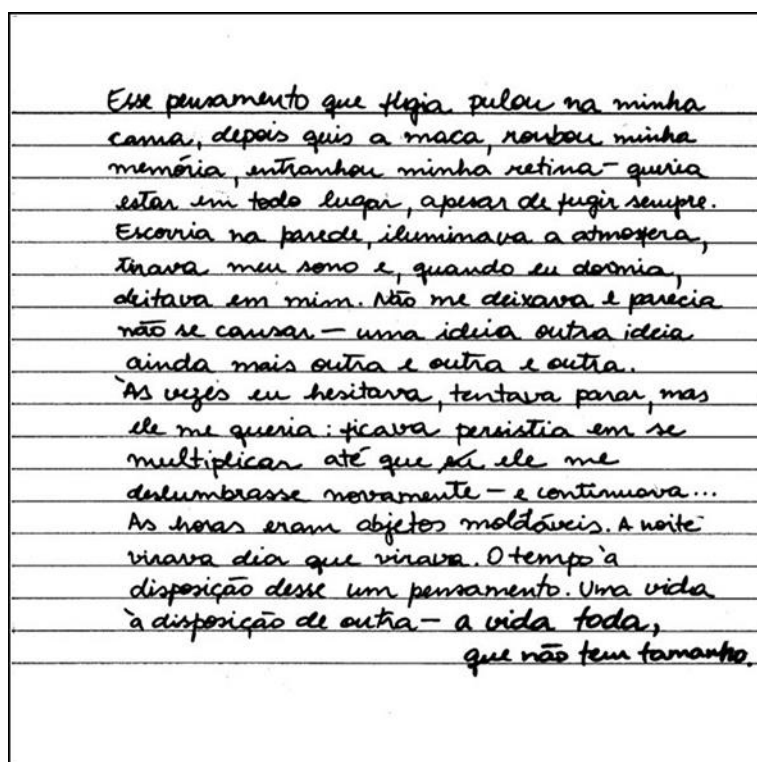 Esse pensamento que fugia pulou na minha
cama, depois quis a maca, roubou minha
memória, entranhou minha retina - queria
estar em todo lugar, apesar de fugir sempre.
Escorria na parede, iluminava a atmosfera,
tirava meu sono e, quando eu dormia,
deitava em mim. Não me deixava e parecia
não se cansar - uma ideia outra ideia
ainda mais outra e outra e outra.
Às vezes eu hesitava, tentava parar, mas
ele me queria: ficava persistia em se
multiplicar até que ele me
deslumbrasse novamente - e continuava...
As horas eram objetos moldáveis. A noite
virava dia que virava. O tempo à
disposição desse um pensamento. Uma vida
à disposição de outra - a vida toda,
que não tem tamanho.